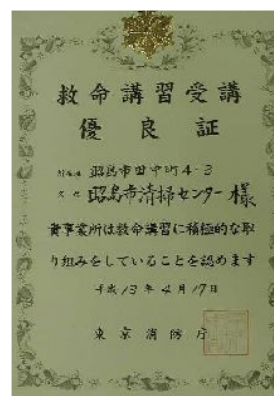 救命講習受講
優良証
所在地 昭島市田中町4-3
昭島市清掃センター 様
貴事業所は救命講習に積極的な取
り組みをしていることを認めます
平成13年4月17日
東京消防庁